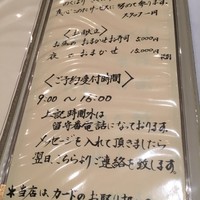 スタッフ一同
〈お献立〉
お昼のおまかせお弁当 5,000円
夜のおまかせ 15,000円
〈ご予約受付時間〉
9:00 ～ 16:00
上記時間外は
留守番電話になっております。
メッセージを入れて頂きましたら
翌日こちらよりご連絡を致します。
＊当店は、カードのお取り扱